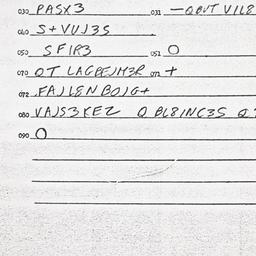 030 PASX3 031 —QOUT VIL8
040 S+VVJ3S
050 SFIR3 051 O
070 OT LAGBEJM3R 071 +
072 FAJL8N BOJG+
080 VAJS3KEZ Q BL8INC3S Q
090 O